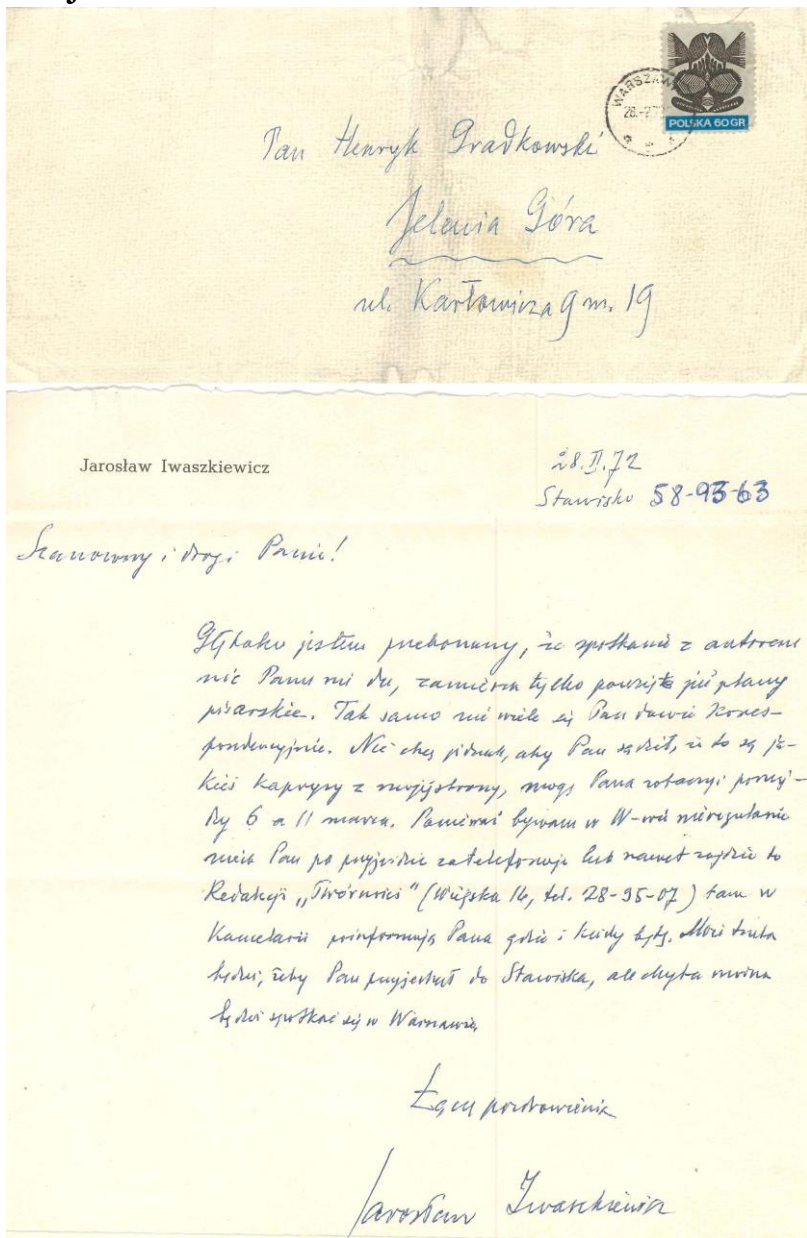 WARSZAWA
28.-2
POLSKA 60 GR
Pan Henryk Gradkowski
Jelenia Góra
ul. Karłowicza 9 m. 19
Jarosław Iwaszkiewicz
28.II.72
Stawisko 58-93-63
Szanowny i drogi Panie!
Głęboko jestem przekonany, że spotkanie z autorem
nic Panu nie da, zamiesza tylko powzięte już plany
pisarskie. Tak samo nie wiele się Pan dowie kores-
pondencyjnie. Nie chcę jednak, aby Pan sądził, że to są ja-
kieś kaprysy z mojej strony, mogę Pana zobaczyć pomię-
dzy 6 a 11 marca. Ponieważ bywam w W-wie nieregularnie
niech Pan po przyjeździe zatelefonuje lub nawet zajdzie do
Redakcji „Twórczości” (Wiejska 16, tel. 28-95-07) tam w
Kancelarii poinformują Pana gdzie i kiedy będę. Może trzeba
będzie, żeby Pan przyjechał do Stawiska, ale chyba można
będzie spotkać się w Warszawie
Łączę pozdrowienia
Jarosław Iwaszkiewicz